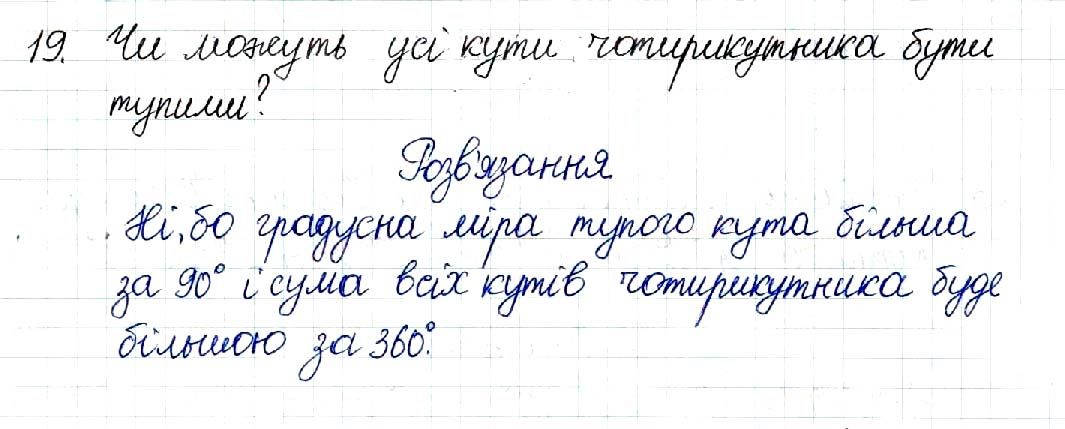 19. Чи можуть усі кути чотирикутника бути
тупими?
Розв'язання
Ні, бо градусна міра тупого кута більша
за 90° і сума всіх кутів чотирикутника буде
більшою за 360°.